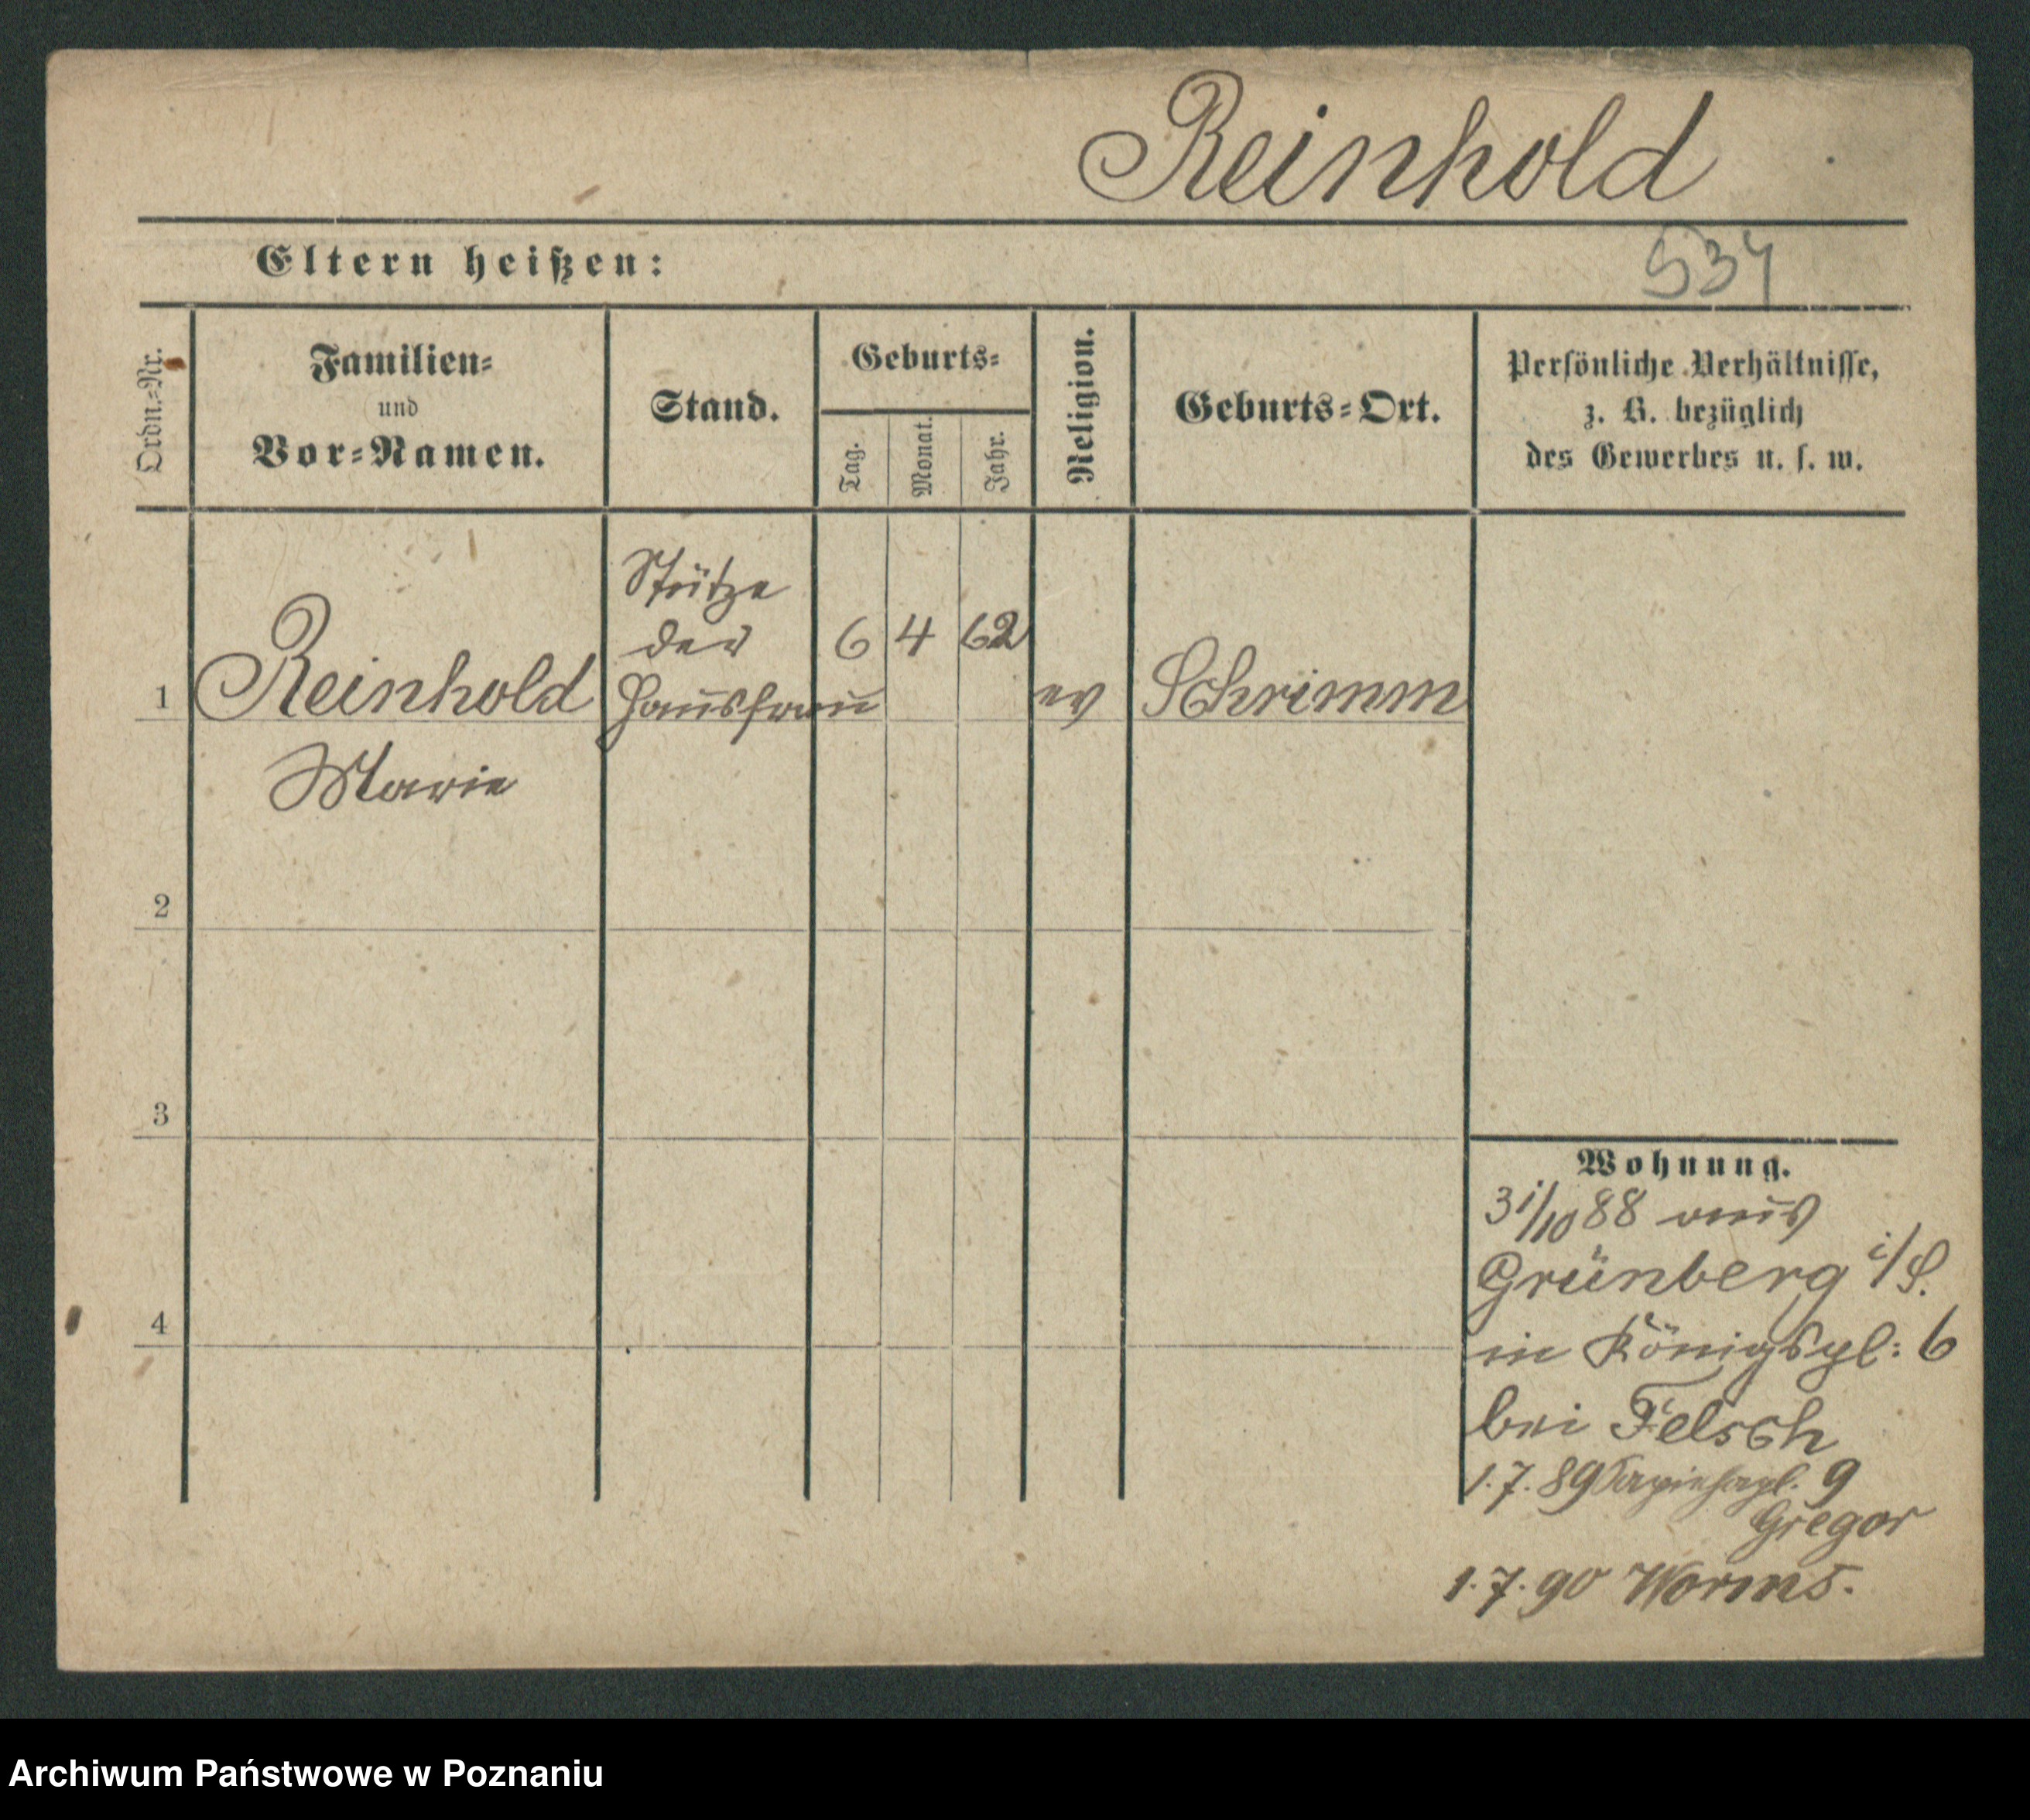 Reinhold
Eltern heißen:
534
Ordn.-Nr.
Familien-
und
Vor-Namen.
Stand.
Geburts-
Tag.
Monat.
Jahr.
Religion.
Geburts-Ort.
Persönliche Verhältnisse,
z. B. bezüglich
des Gewerbes u. s. w.
1
Reinhold
Marie
Stütze
der
Hausfrau
6
4
62
ev
Schrimm
2
3
4
Wohnung.
31/10 88 aus
Grünberg i/S.
in Königspl: 6
bei Felsch
1.7.89 Sapiehapl. 9
Gregor
1.7.90 Worms.
Archiwum Państwowe w Poznaniu